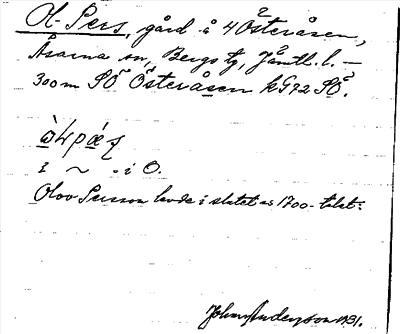 Ol-Pers, gård å 4 Österåsen,
Åsarna sn, Bergs tg, Jämtl. l. —
300 m SÖ Österåsen kG72 SÖ.
i ~ . i O.
Olov Persson levde i slutet av 1700-talet.
Johnny Anderson 1931.